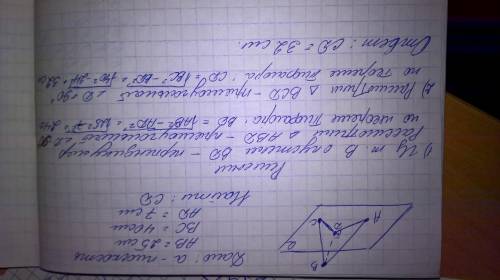 Дано: α - плоскость
AB = 25 см
BC = 40 см
AD = 7 см
Найти: CD
Решение
1) Из т. B опустим BD - перпендикуляр
Рассмотрим Δ ABD - прямоугольный
по теореме Пифагора: BD = √AB² - AD² =
2) Рассмотрим Δ BCD - прямоугольный ∠D = 90°
по теореме Пифагора: CD = √BC² - BD² =
Ответ: CD = 32 см.
B
A
D
C
α